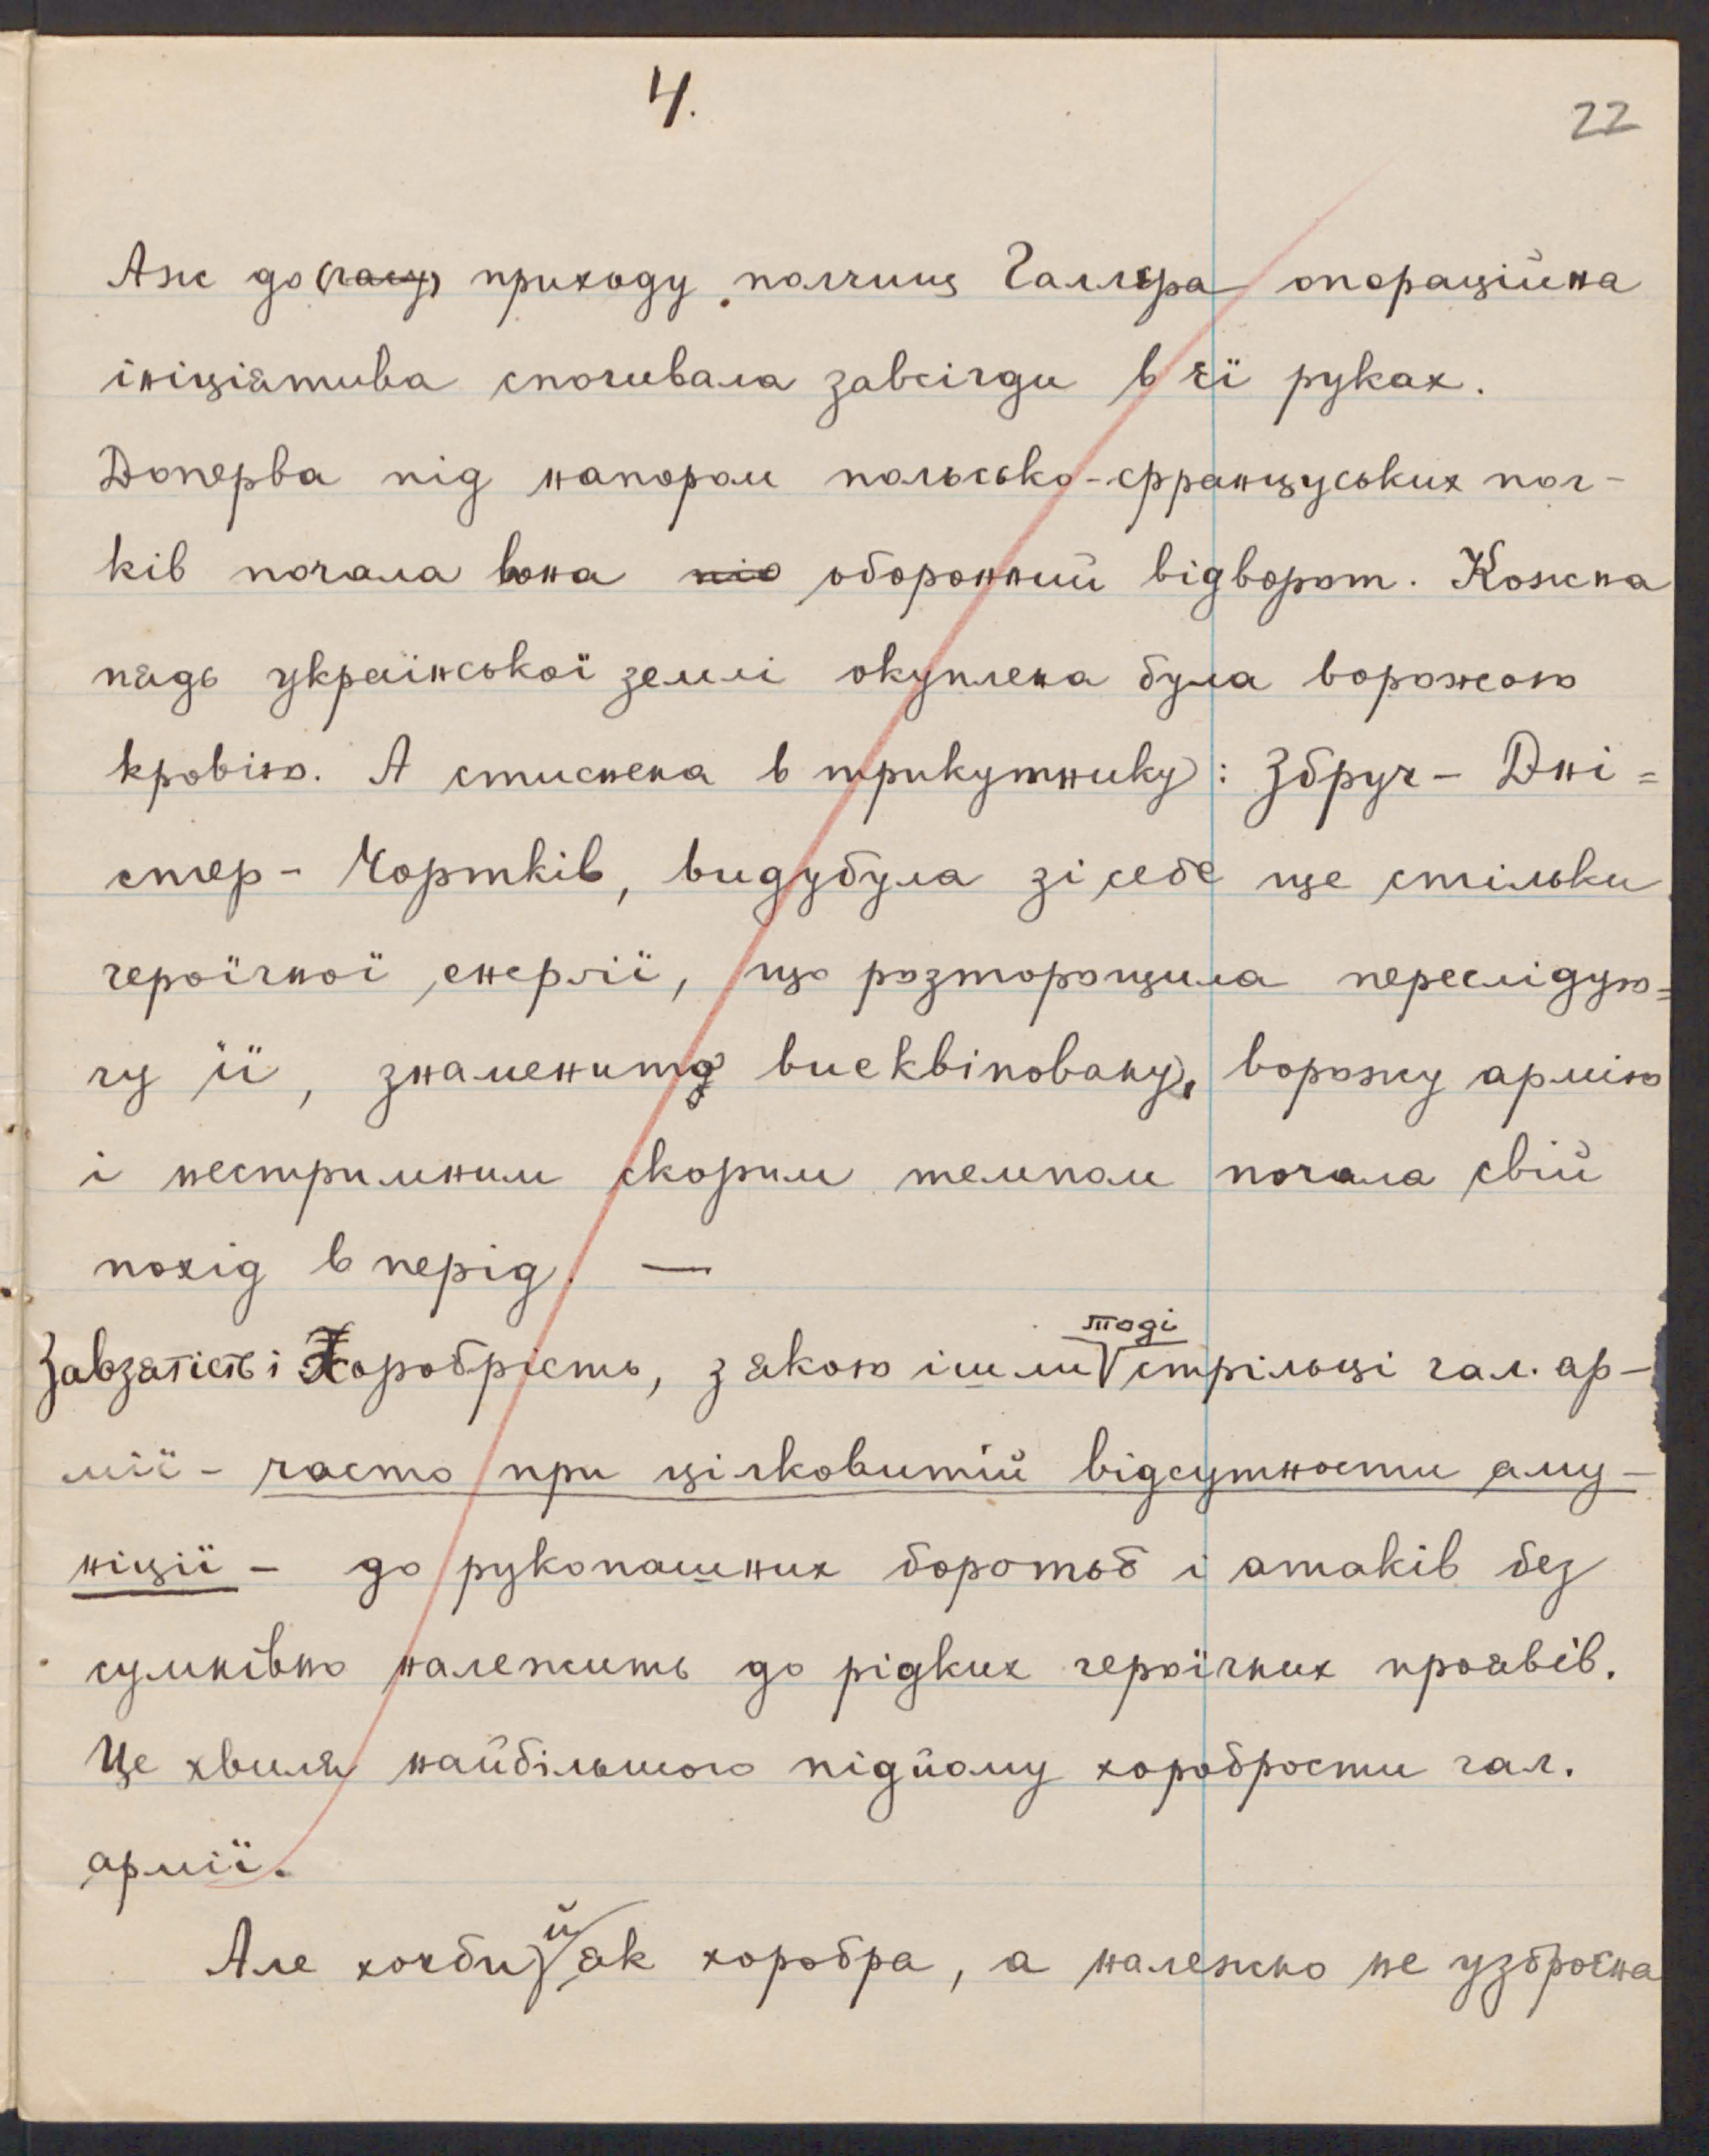 4.
22
Аже до (часу) приходу полчищ Галлєра операційна
ініціятива спочивала завсігди в єї руках.
Доперва під напором польсько-француських пол-
ків почала вона під оборонний відворот. Кожна
пядь української землі окуплена була ворожою
кровію. А стиснена в трикутнику: Збруч - Дні=
стер - Чортків, видубула зі себе ще стільки
героїчної енерґії, що розторощила переслідую=
чу її, знаменито виеквіповану, ворожу армію
і нестримним скорим темпом почала свій
похід в перід. —
Завзятість і Хоробрість, з якою ішли тоді стрільці гал. ар-
мії - часто при цілковитій відсутности аму-
ніції - до рукопашних боротьб і атаків без
сумнівно належить до рідких героїчних проявів.
Це хвиля найбільшого підйому хоробрости гал.
армії.
Але хочби й як хоробра, а належно не узброєна